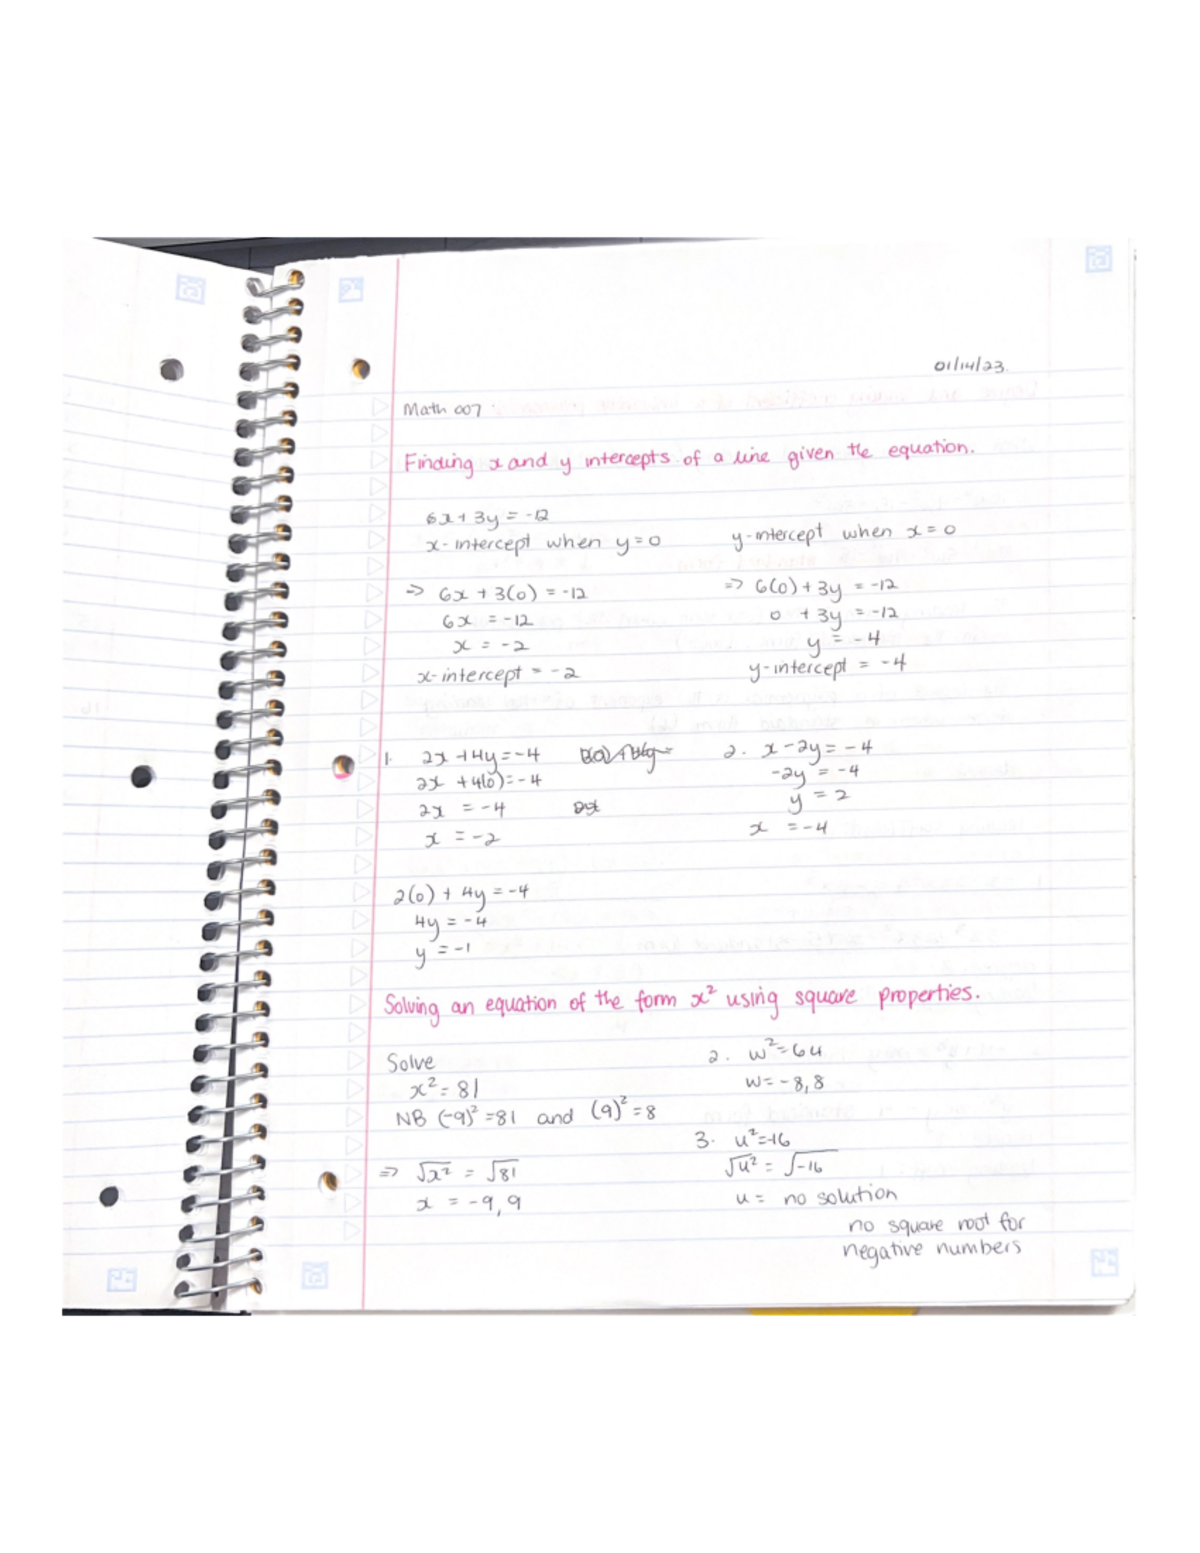 01/14/23.
Math 007
Finding x and y intercepts of a line given the equation.
6x + 3y = -12
x-intercept when y=0
y-intercept when x=0
=> 6x + 3(0) = -12
6x = -12
x = -2
x-intercept = -2
=> 6(0) + 3y = -12
0 + 3y = -12
y = -4
y-intercept = -4
1. 2x +4y=-4
2x +4(0)=-4
2x = -4
x = -2
2(0) + 4y = -4
4y = -4
y = -1
2. x-2y = -4
-2y = -4
y = 2
x = -4
Solving an equation of the form x² using square properties.
Solve
x² = 81
NB (-9)² = 81 and (9)² = 8
=> √x² = √81
x = -9, 9
2. w² = 64
w = -8, 8
3. u²=-16
√u² = √-16
u = no solution
no square root for
negative numbers